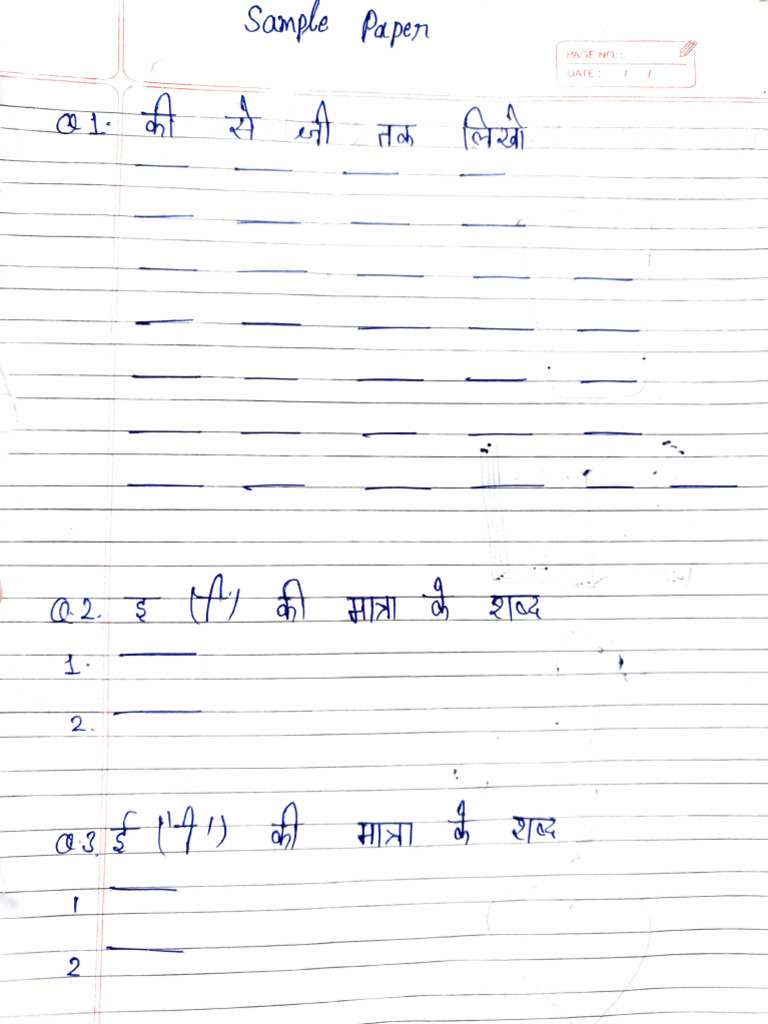 Sample Paper
PAGE NO. :
DATE : / /
Q 1. की से ज्ञी तक लिखो
Q.2. इ (ि) की मात्रा के शब्द
1.
2.
Q.3. ई ('ी') की मात्रा के शब्द
1
2